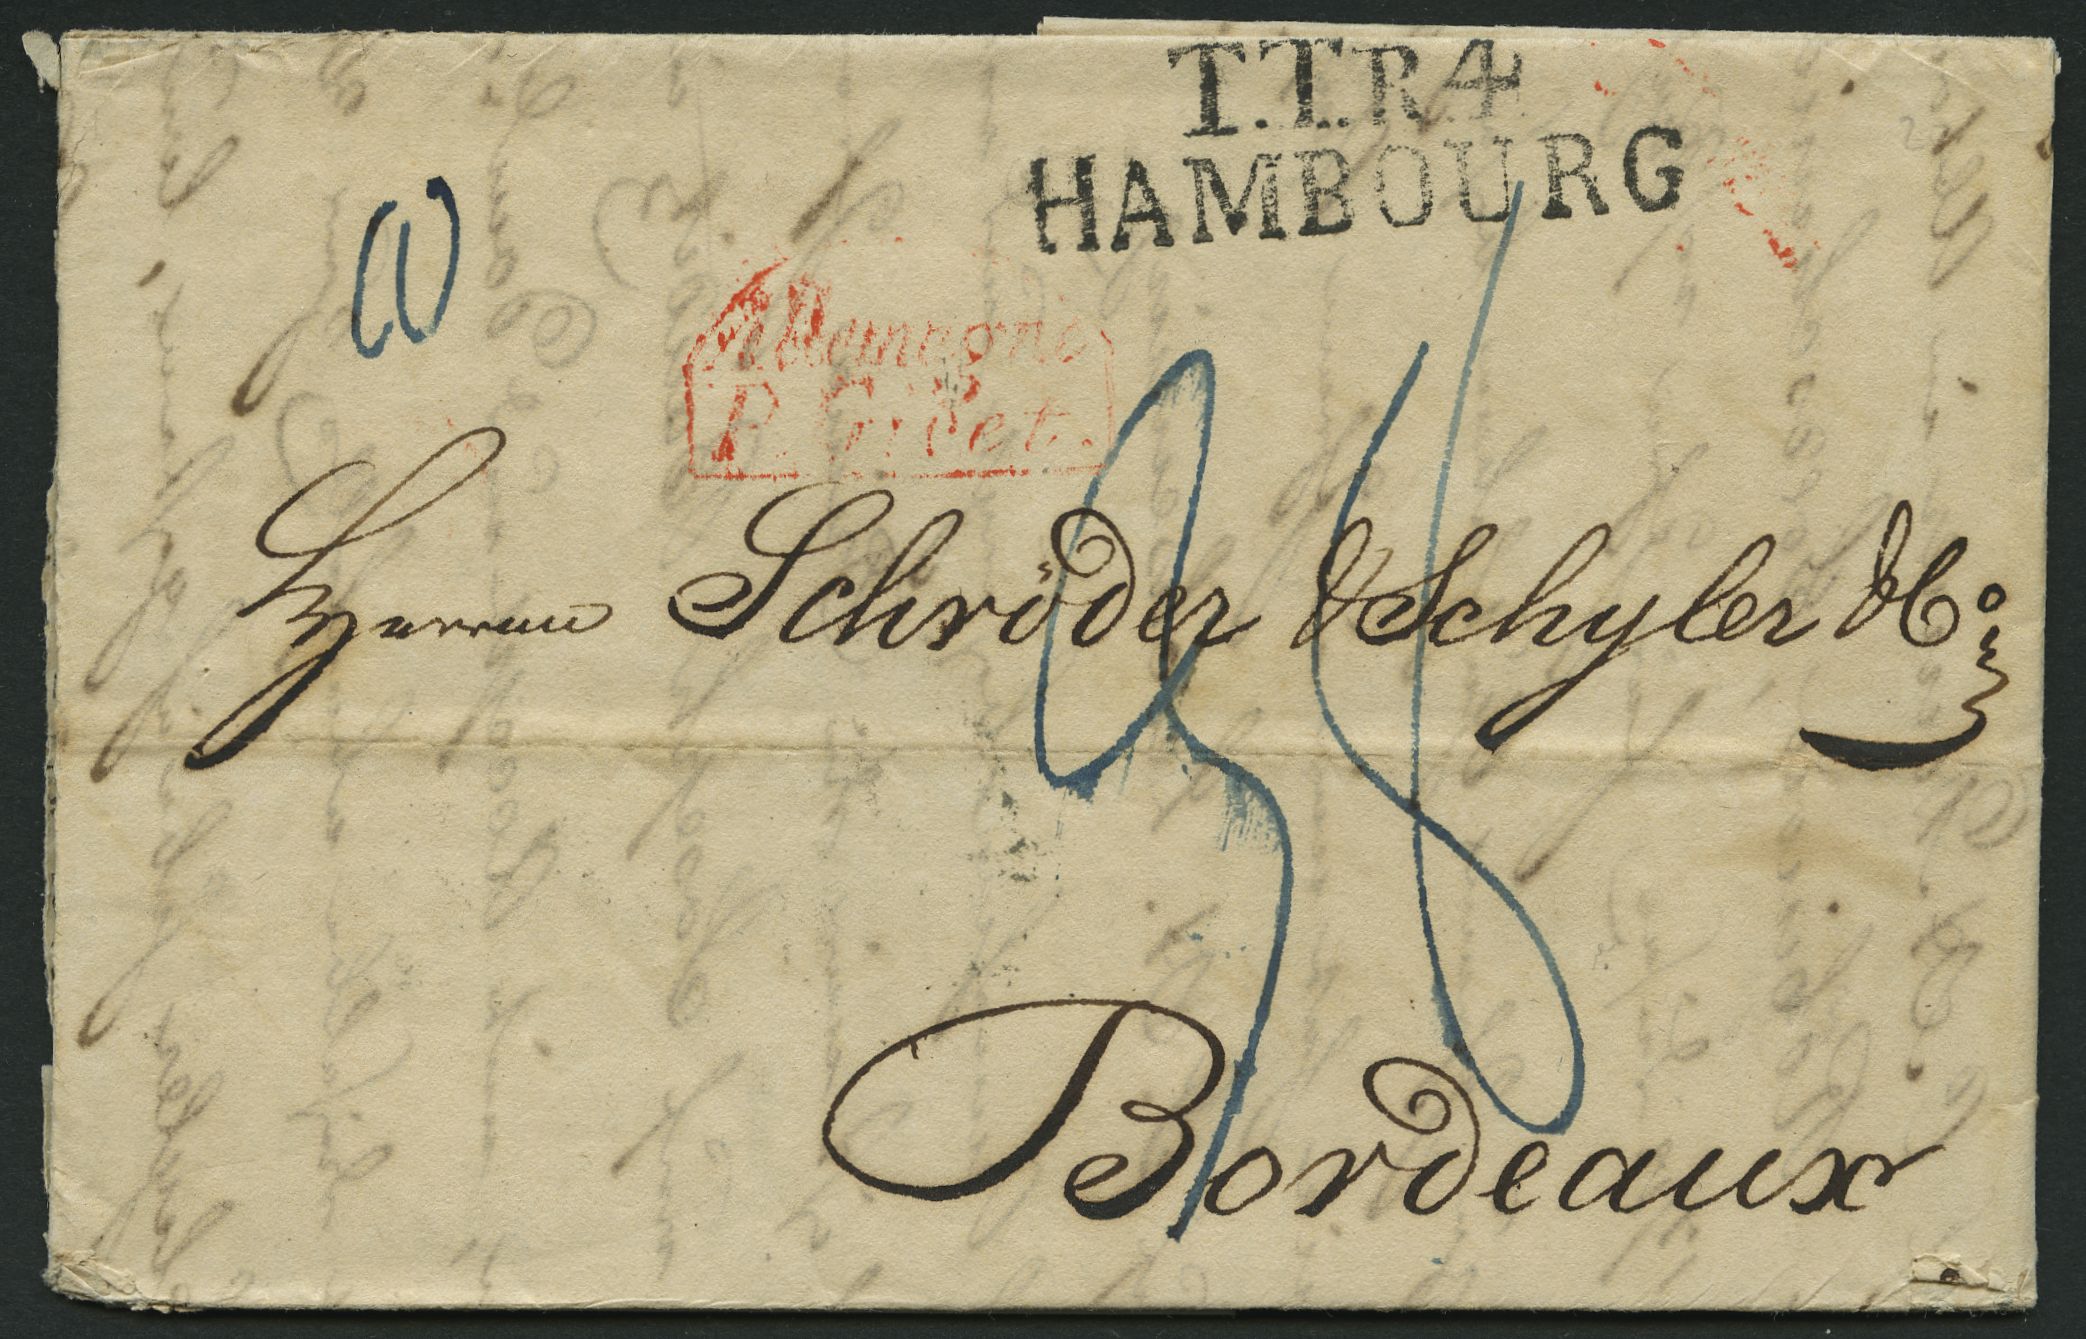 T.T.R.4.
HAMBOURG
Allemagne
P. Givet.
38
Herren Schröder & Schyler & Co.
Bordeaux